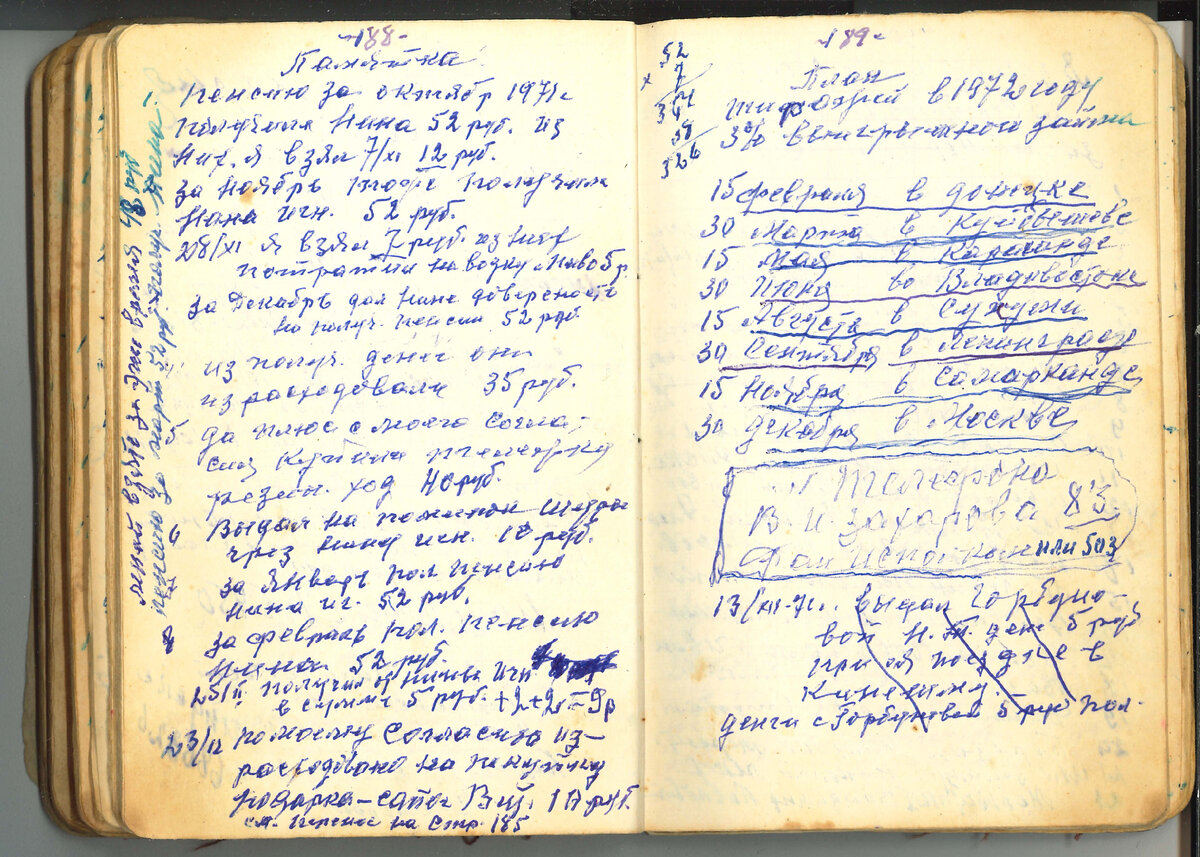 -188-
Памятка
Пенсию за октябрь 1971г
получила Нина 52 руб. из
них я взял 7/XI 12 руб.
за ноябрь тоже получила
Нина игн. 52 руб.
28/XI я взял 7 руб. из них
потратил на водку
за декабрь дал Нине довереность
на получ. пенсии 52 руб.
из получ. денег они
израсходовали 35 руб.
да плюс с моего согла-
сия купили
резин. ход 40 руб.
Выдал на
чрез Нину игн. 10 руб.
за январь пол пенсию
Нина иг. 52 руб.
за февраль пол. пенсию
Нина 52 руб.
25/II получил от Нины Игн
в сумме 5 руб. +2+2=9р
23/II по моему согласию из-
расходовано на покупку
подарка-сапог 10 руб.
см. перенос на стр. 185
мной взято за это время 48 руб
пенсию за март 52 руб. получ. Нина.
-189-
52
× 7
364
План
тиражей в 1972 году
3% выигрышного займа
15 февраля в донецке
30 Марта в Куйбышеве
15 Мая в Караганде
30 Июня во Владивостоке
15 Августа в
30 Сентября в Ленинграде
15 Ноября в Самарканде
30 декабря в Москве
Телефона
В. И Захарова 8'3
или 503
13/XII-71г. выдал Горбуно-
вой Н. Т. ден 5 руб
при ея поездке в
Кинешму
денги с Горбуновой 5 руб пол.